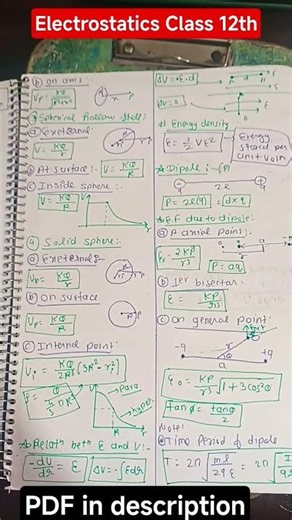 Electrostatics Class 12th
ⓑ on axis :-
Vp = KQ / √R²+x²
③ Spherical Hollow Shell:-
ⓐ External:-
V = KQ / r
ⓑ At surface :- V = KQ / R
ⓒ Inside sphere :-
V = KQ / R
④ Solid sphere:-
ⓐ External:-
Vp = KQ / r
ⓑ on surface
Vp = KQ / R
ⓒ Internal point:
Vi = KQ / 2R³ (3R² - r²)
Para
hyper
Relatn betn E and V:-
-dV / dr = E
ΔV = -∫Edr
ΔV = -E.d
ΔV = 0
# Energy density
Energy
stored per
unit volm
Dipole :-
-q
+q
2l
P = 2l(q) = d×q
E.F due to dipole:-
ⓐ Axial point:-
2KP / r³
P = aq
ⓑ ⊥er bisector:-
E = KP / r³
ⓒ On general point:-
-q
+q
a
KP / r³ √1 + 3cos²θ
tanφ = tanθ / 2
Note!
Time Period of dipole
PDF in description